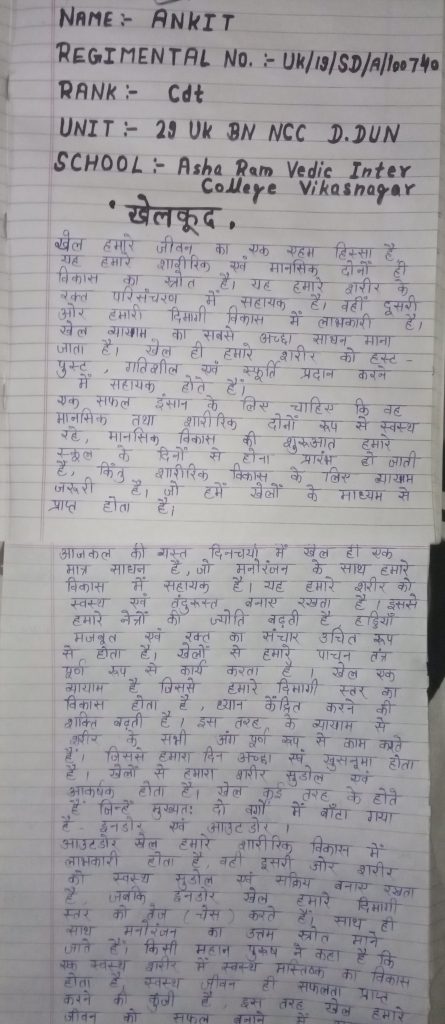 NAME:- ANKIT
REGIMENTAL NO. :- UK/19/SD/A/100740
RANK:- Cdt
UNIT:- 29 UK BN NCC D.DUN
SCHOOL:- Asha Ram Vedic Inter
College Vikasnagar
खेलकूद
खेल हमारे जीवन का एक एहम हिस्सा है
यह हमारे शारीरिक एवं मानसिक दोनों ही
विकास का स्त्रोत है। यह हमारे शरीर के
रक्त परिसंचरण में सहायक है। वहीं दूसरी
ओर हमारी दिमागी विकास में लाभकारी है।
खेल व्यायाम का सबसे अच्छा साधन माना
जाता है। खेल ही हमारे शरीर को हस्ट -
पुस्ट, गतिशील एवं स्फूर्ति प्रदान करने
में सहायक होते हैं।
एक सफल इंसान के लिए चाहिए कि वह
मानसिक तथा शारीरिक दोनों रूप से स्वस्थ
रहे, मानसिक विकास की शुरूआत हमारे
स्कूल के दिनों से होना प्रारंभ हो जाती
है, किंतु शारीरिक विकास के लिए व्यायाम
जरूरी है। जो हमें खेलों के माध्यम से
प्राप्त होता है।
आजकल की व्यस्त दिनचर्या में खेल ही एक
मात्र साधन है, जो मनोरंजन के साथ हमारे
विकास में सहायक है। यह हमारे शरीर को
स्वस्थ एवं तंदुरूस्त बनाए रखता है। इससे
हमारे नेत्रों की ज्योति बढ़ती है हड्डियाँ
मजबूत एवं रक्त का संचार उचित रूप
से होता है। खेलों से हमारे पाचन तंत्र
पूर्ण रूप से कार्य करता है। खेल एक
व्यायाम है जिससे हमारे दिमागी स्तर का
विकास होता है, ध्यान केंद्रित करने की
शक्ति बढ़ती है। इस तरह के व्यायाम से
शरीर के सभी अंग पूर्ण रूप से काम करते
हैं। जिससे हमारा दिन अच्छा एवं खुसनुमा होता
है। खेलों से हमारा शरीर सुडोल एवं
आकर्षक होता है। खेल कई तरह के होते
हैं जिन्हें मुख्यतः दो वर्गों में बाँटा गया
है - इनडोर एवं आउटडोर।
आउटडोर खेल हमारे शारीरिक विकास में
लाभकारी होता है, वही दूसरी ओर शरीर
को स्वस्थ सुडोल एवं सक्रिय बनाए रखता
है, जबकि इनडोर खेल हमारे दिमागी
स्तर को तेज (चेस) करते हैं। साथ ही
साथ मनोरंजन का उत्तम स्त्रोत माने
जाते हैं। किसी महान पुरूष ने कहा है कि
एक स्वस्थ शरीर में स्वस्थ मस्तिष्क का विकास
होता है, स्वस्थ जीवन ही सफलता प्राप्त
करने की कुंजी है, इस तरह खेल हमारे
जीवन को सफल बनाने में